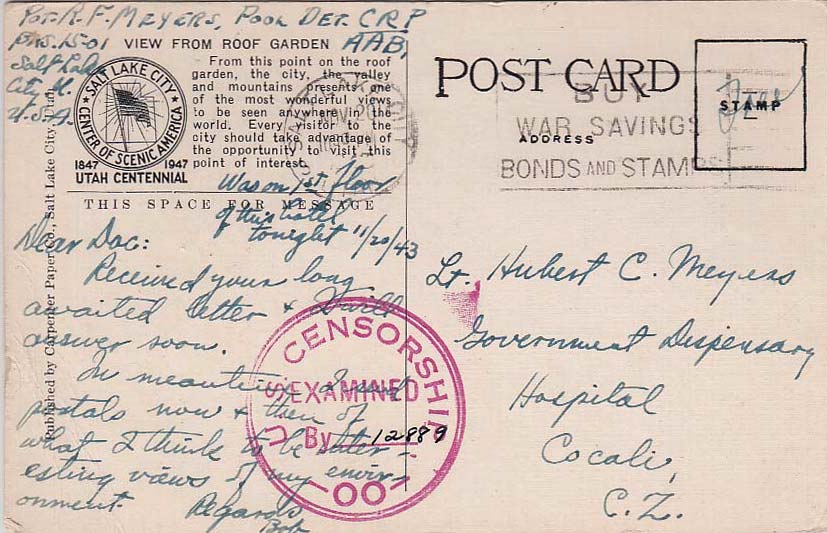 Pvt. R. F. MEYERS, POOL DET. CRP
BKS. 1501 AAB,
Salt Lake
City U.
U.S.A.
VIEW FROM ROOF GARDEN
From this point on the roof
garden, the city, the valley
and mountains presents one
of the most wonderful views
to be seen anywhere in the
world. Every visitor to the
city should take advantage of
the opportunity to visit this
point of interest.
SALT LAKE CITY
CENTER OF SCENIC AMERICA
1847 1947
UTAH CENTENNIAL
THIS SPACE FOR MESSAGE
Was on 1st floor
of this hotel
tonight 11/20/43
Dear Doc:
Received your long
awaited letter & will
answer soon.
In meantime I send
postals now & then of
what I think to be inter-
esting views of my envir-
onment. Regards
Bob
Published by Carpenter Paper Co., Salt Lake City, Utah
U.S. CENSORSHIP
EXAMINED
By 12889
00
POST CARD
ADDRESS
STAMP
Free
BUY
WAR SAVINGS
BONDS AND STAMPS
Lt. Hubert C. Meyers
Government Dispensary
Hospital
Cocoli,
C.Z.